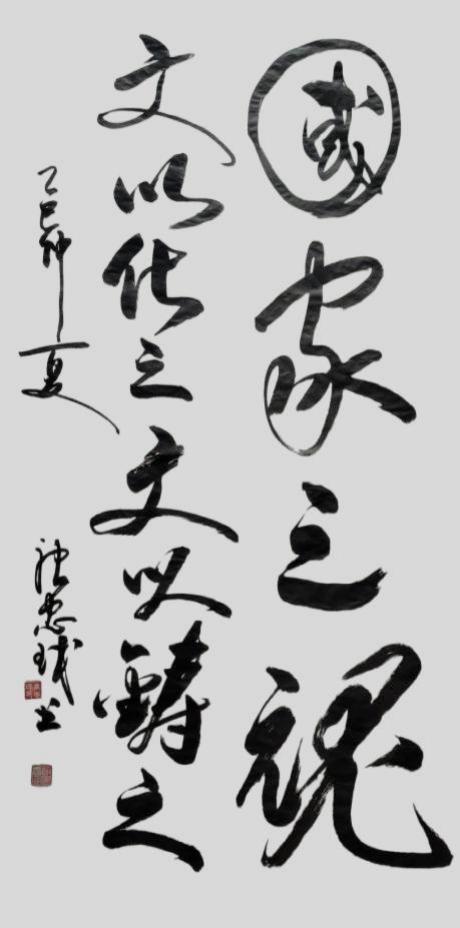 國家之魂
文以化之文以鑄之
乙巳仲夏
忠 书